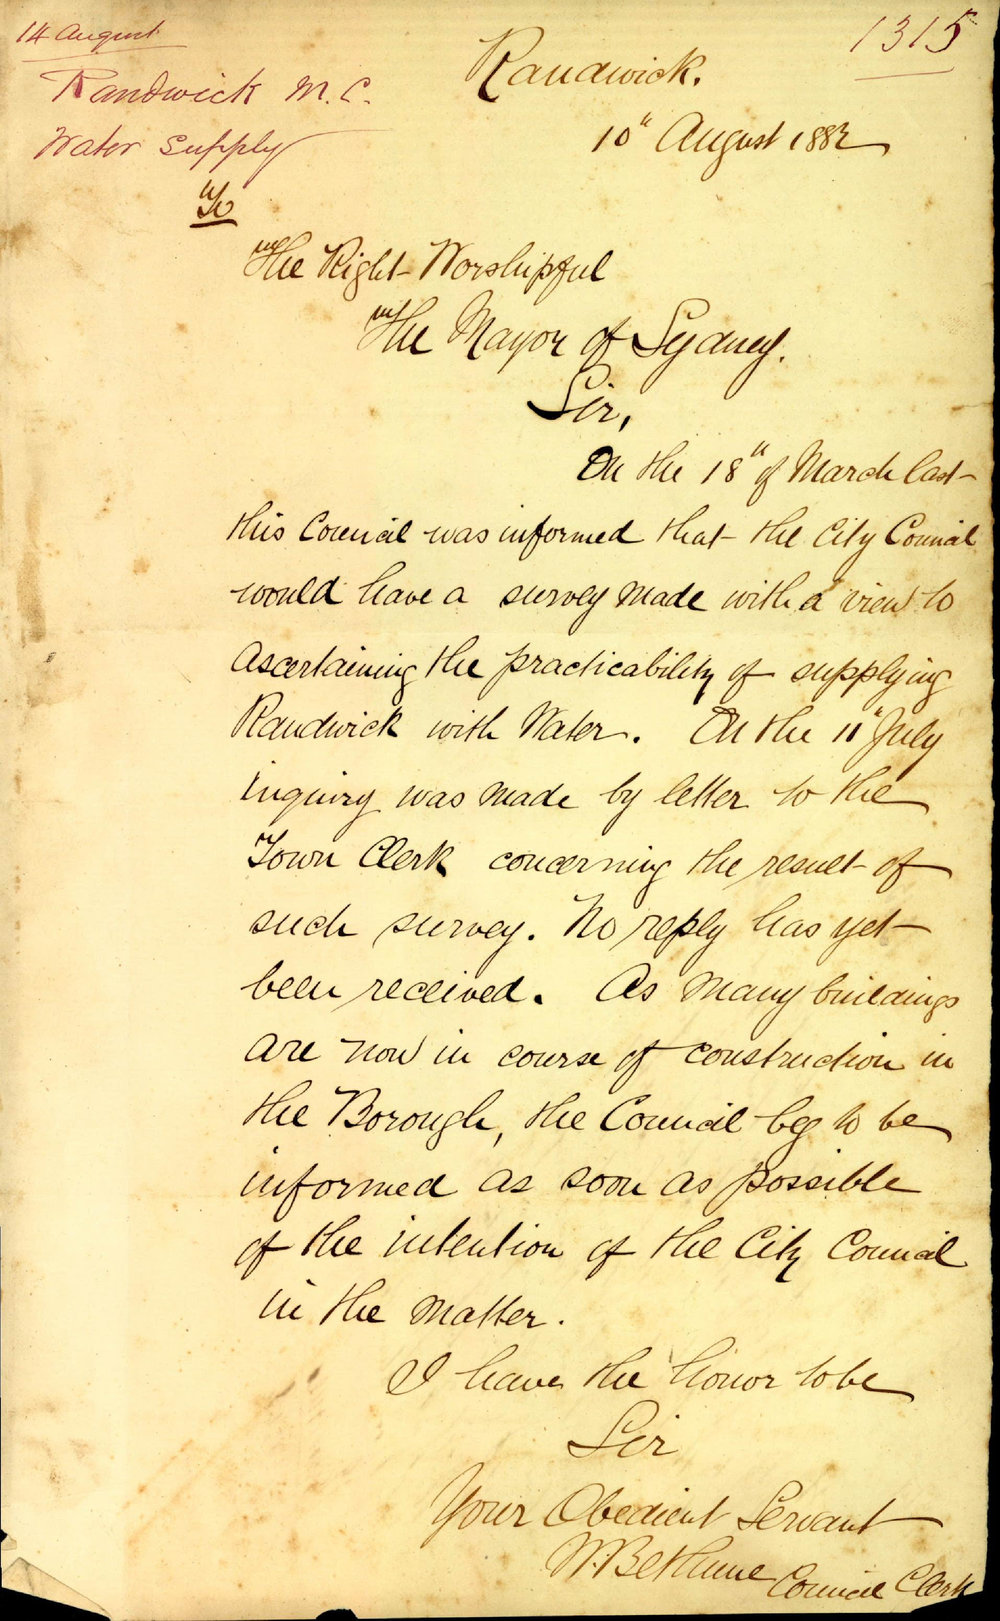 14 August
1315
Randwick M.C.
Water Supply
Randwick.
10" August 1882
To
The Right Worshipful
The Mayor of Sydney.
Sir,
On the 18" of March last
this Council was informed that the City Council
would have a survey made with a view to
ascertaining the practicability of supplying
Randwick with Water. On the 11" July
inquiry was made by letter to the
Town Clerk concerning the result of
such survey. No reply has yet
been received. As many buildings
are now in course of construction in
the Borough, the Council beg to be
informed as soon as possible
of the intention of the City Council
in the matter.
I have the honor to be
Sir
Your Obedient Servant
W. Bethune Council Clerk